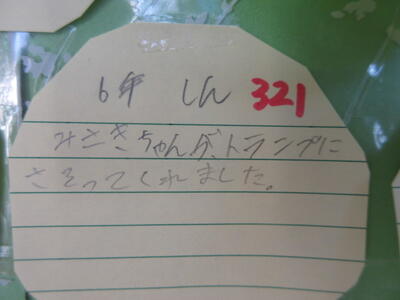 6年 しん 321
みさきちゃんが、トランプに
さそってくれました。